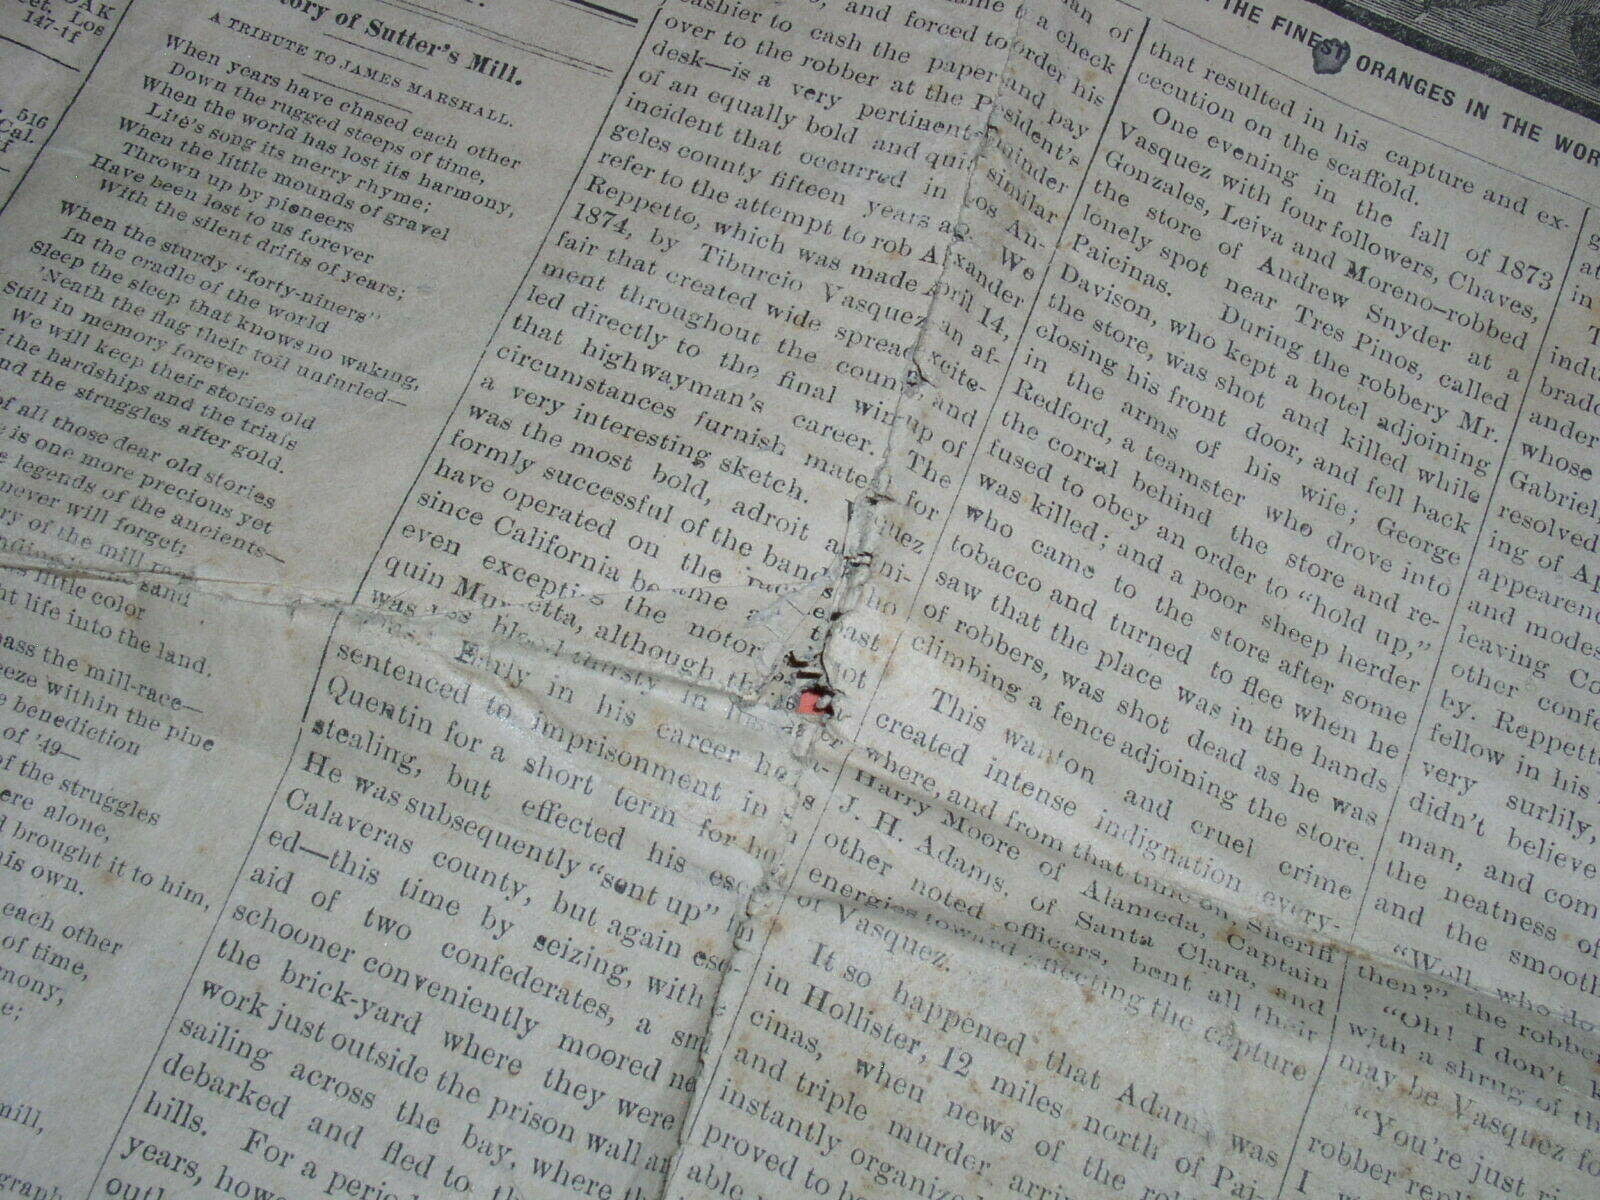 OAK
eet, Los
147-tf
516
Cal.
tory of Sutter's Mill.
A TRIBUTE TO JAMES MARSHALL.
When years have chased each other
Down the rugged steeps of time,
When the world has lost its harmony,
Life's song its merry rhyme;
When the little mounds of gravel
Thrown up by pioneers
Have been lost to us forever
With the silent drifts of years;
When the sturdy "forty-niners"
In the cradle of the world
Sleep the sleep that knows no waking,
'Neath the flag their toil unfurled—
Still in memory forever
We will keep their stories old
the hardships and the trials
nd the struggles after gold.
of all those dear old stories
is one more precious yet
legends of the ancients—
never will forget;
ry of the mill
sand
little color
life into the land.
pass the mill-race—
eeze within the pine
benediction
of '49—
of the struggles
ere alone,
brought it to him,
his own.
each other
of time,
mony,
e;
mill,
graph
cashier to cash the paper and pay
over to the robber at the President's
desk—is a very pertinent reminder
of an equally bold and quite similar
incident that occurred in Los An-
geles county fifteen years ago. We
refer to the attempt to rob Alexander
Reppetto, which was made April 14,
1874, by Tiburcio Vasquez, an af-
fair that created wide spread excite-
ment throughout the county, and
led directly to the final windup of
that highwayman's career. The
circumstances furnish material for
a very interesting sketch. Vasquez
was the most bold, adroit and uni-
formly successful of the bandits who
have operated on the
since California became a
even excepting the notor
quin Murietta, although
was less blood thirsty in his
Early in his career he was
sentenced to imprisonment in
Quentin for a short term for
stealing, but effected his
He was subsequently "sent up"
Calaveras county, but again esc
ed—this time by seizing, with
aid of two confederates, a
schooner conveniently moored
the brick-yard where they were
work just outside the prison wall
sailing across the bay, where
debarked and fled to
hills. For a
years,
that resulted in his capture and ex-
cecution on the scaffold.
One evening in the fall of 1873
Vasquez with four followers, Chaves,
Gonzales, Leiva and Moreno—robbed
the store of Andrew Snyder at a
lonely spot near Tres Pinos, called
Paicinas. During the robbery Mr.
Davison, who kept a hotel adjoining
the store, was shot and killed while
closing his front door, and fell back
in the arms of his wife; George
Redford, a teamster who drove into
the corral behind the store and re-
fused to obey an order to "hold up,"
was killed; and a poor sheep herder
who came to the store after some
tobacco and turned to flee when he
saw that the place was in the hands
of robbers, was shot dead as he was
climbing a fence adjoining the store.
This wanton and cruel crime
created intense indignation every-
where, and from that time on, Sheriff
Harry Moore of Alameda, Captain
J. H. Adams, of Santa Clara, and
other noted officers, bent all their
energies toward effecting the capture
of Vasquez.
It so happened that Adams was
in Hollister, 12 miles north of Pai-
cinas, when news of the
and triple murder
instantly
proved to
able
THE FINEST ORANGES IN THE WOR
at
in
indu
bradd
ander
whose
Gabriel,
resolved
ing of Ap
appearenc
and modes
leaving Co
other confe
by. Reppetto
fellow in his
very surlily,
didn't believe
man, and com
the neatness of
and the smooth
"Well, who do
then?" the robber
"Oh! I don't k
with a shrug of th
may be Vasquez fo
"You're just ri
robber